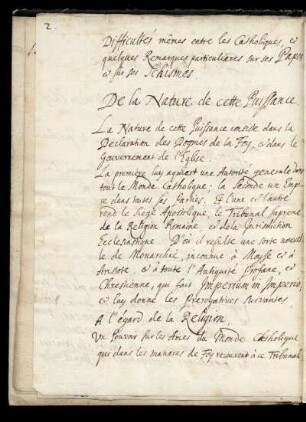 2.
Difficultés mêmes entre les Catholiques, &
quelques Remarques particulieres sur ses Papes
& sur ses Schismes
De la Nature de cette Puissance
La Nature de cette Puissance consiste dans la
Declaration des Dogmes de la Foy, & dans le
Gouvernement de l'Eglise.
La premiere luy aquiert une Autorité generale dans
tout le Monde Catholique; la Seconde un Empi-
re dans toutes ses Parties. Et l'une & l'autre
rend le Siege Apostolique, le Tribunal supreme
de la Religion Romaine, & de la Jurisdiction
Ecclesiastique. D'où il resulte une sorte nouvel-
le de Monarchie, inconnue à Moyse & à
Aristote & à toute l'Antiquité profane, &
Chrestienne, qui fait Imperium in Imperio,
& luy donne les Prerogatives suivantes
A l'égard de la Religion.
Un Pouvoir sur les Ames du Monde Catholique
qui dans les matieres de Foy recourent à ce Tribunal